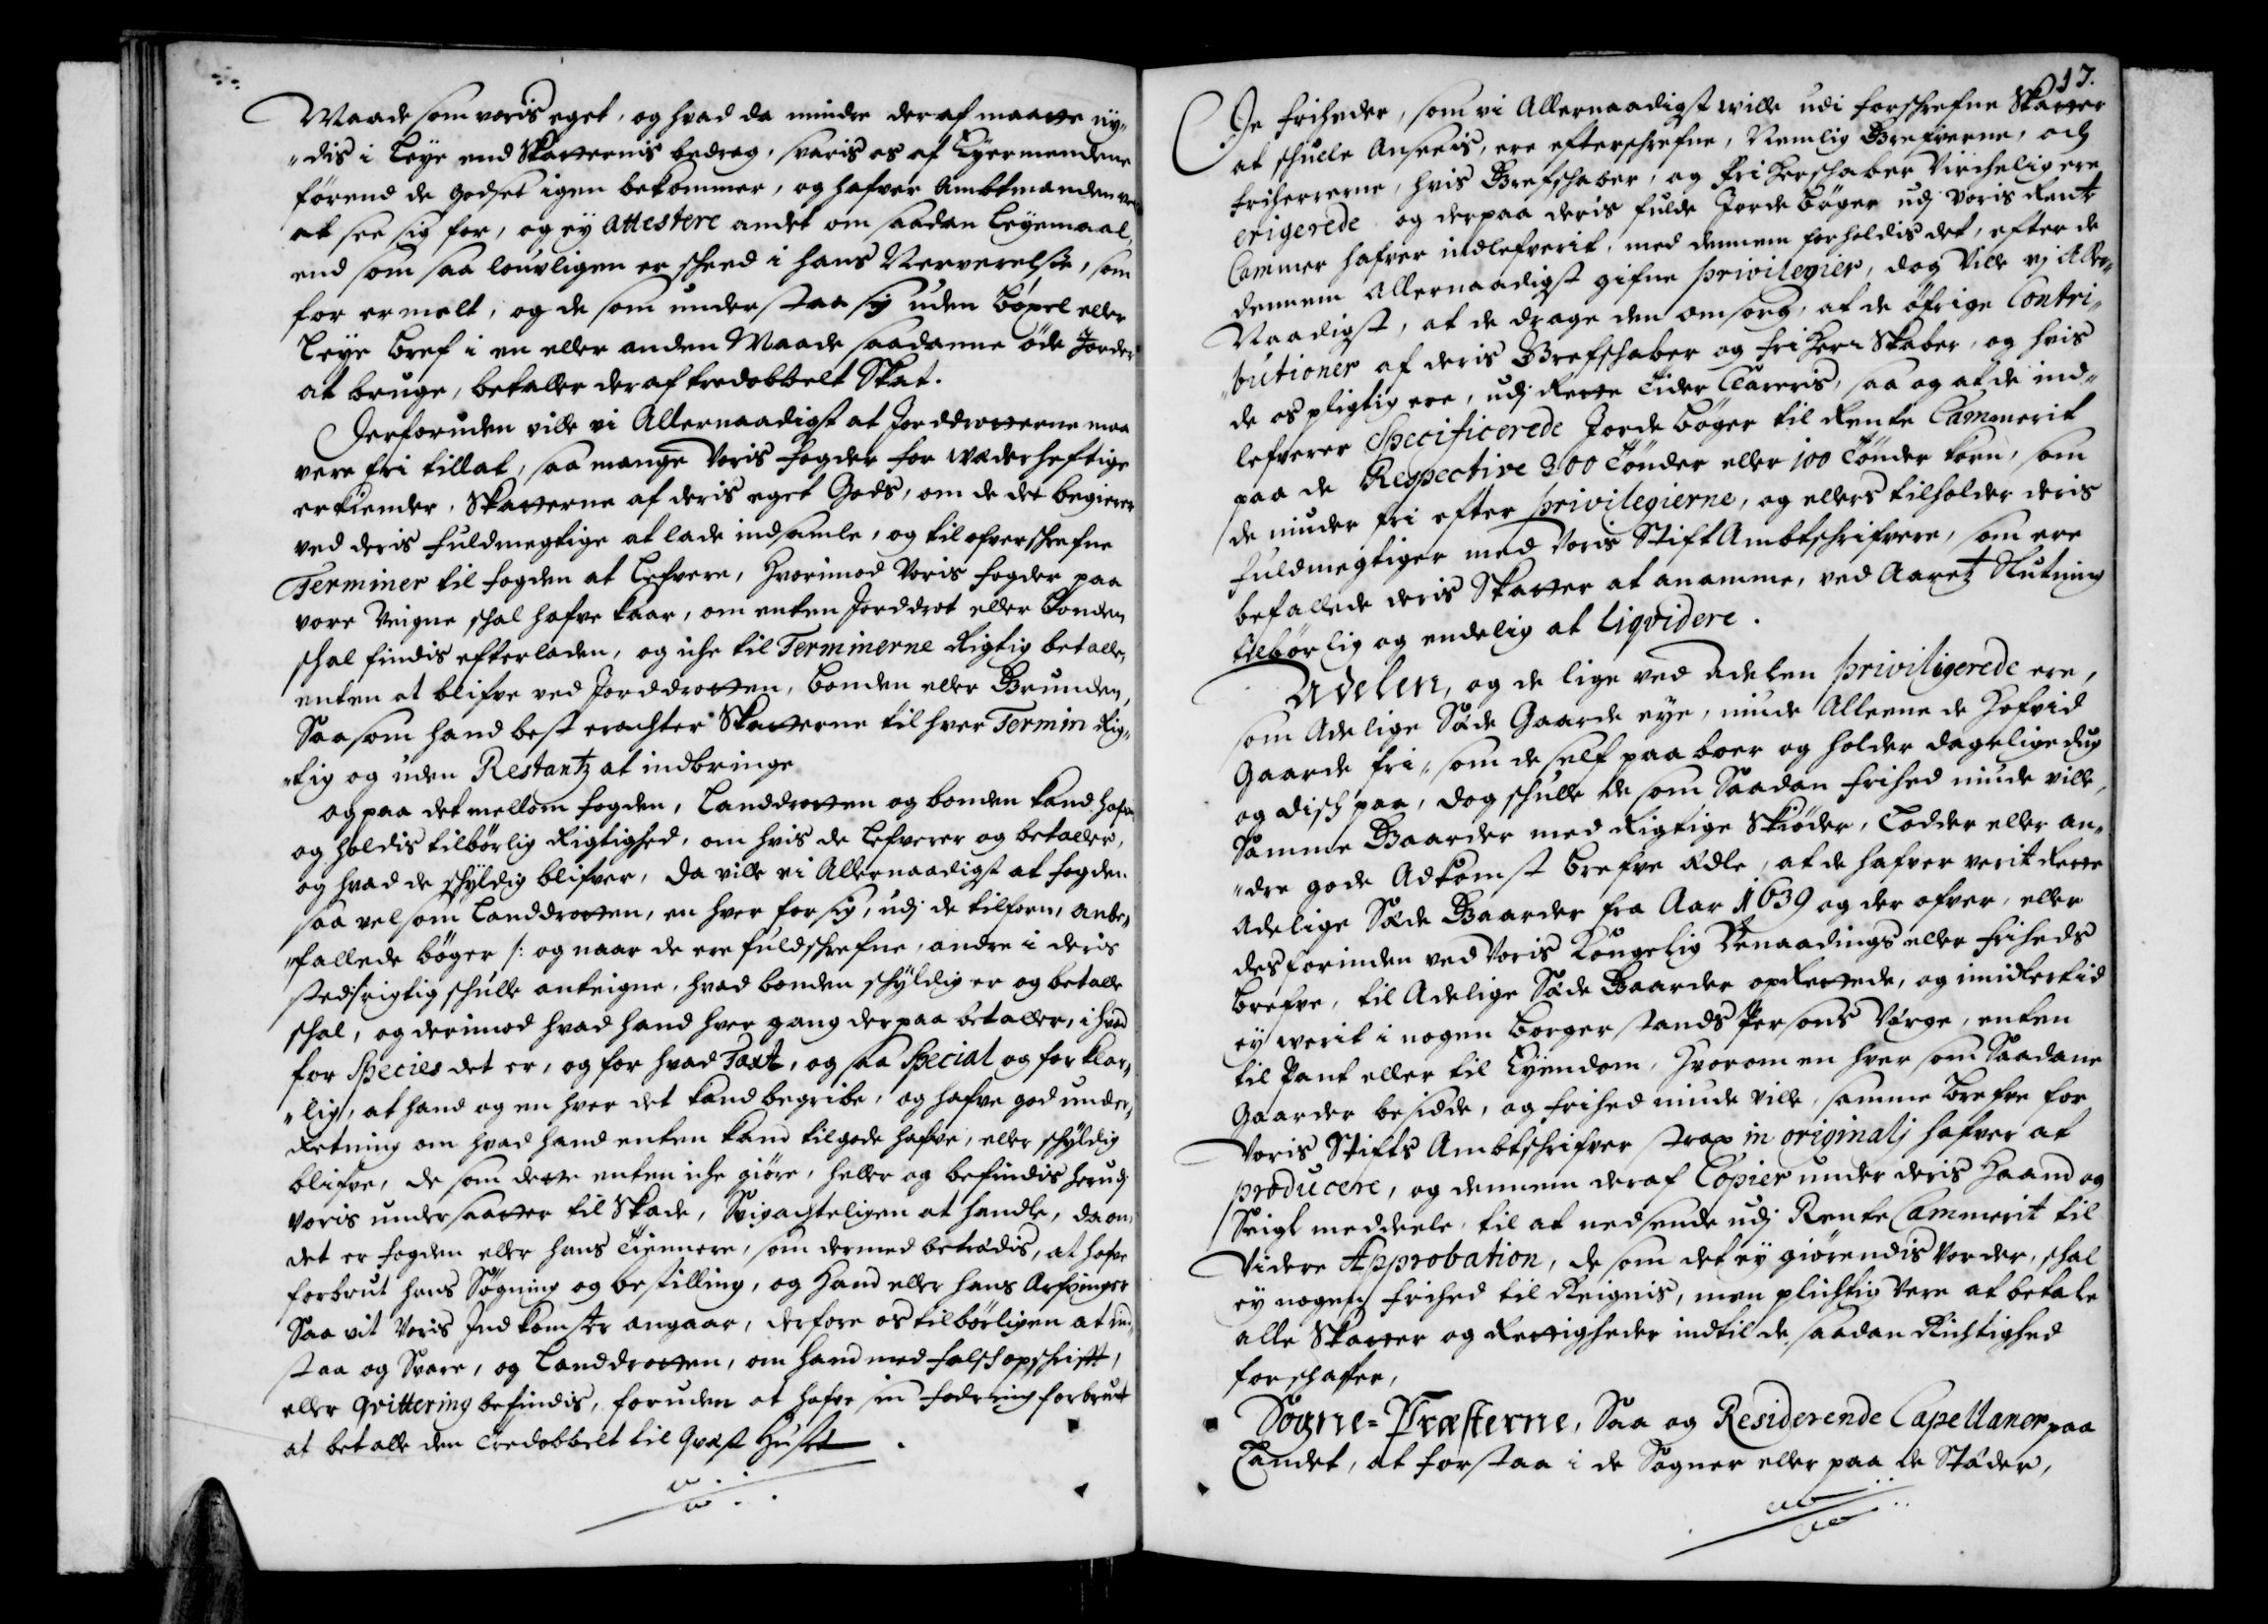 Maade som voris eget, og hvad da mindre deraf maatte ny„
„dis i Leye end Skatternis bedrag, svaris os af Eyermendene
førend de Godset igen bekommer, og hafver Ambtmanden vel
at see sig for, og ey attestere andet om saadan Leyemaal,
end som saa louvligen er scheed i hans Nerverelse, som
for ermelt, og de som understaa sig uden Böxel eller
Leye bref i en eller anden Maade saadanne öde Jorder
at bruge, betaller deraf tredobbelt Skat.
Derforuden ville vi Allernaadigst at Jorddrotterne maa
vere fri tillat, saa mange Voris fogder for wederheftige
erkiender, Skatterne af deris eget Gods, om de det begierer
ved deris fuldmegtige at lade indsamle, og til ofverschrefne
Terminer til fogden at Lefvere, Hvorimod Voris fogder paa
vore Veigne schal hafve kaar, om enten Jorddrot eller Bonden
schal findis efterladen, og iche til Terminerne Rigtig betalle,
enten at blifve ved Jorddrotten, bonden eller Grunden,
Saasom hand best erachter Skatterne til hver Termin Rig„
„tig og uden Restantz at indbringe
og paa det mellom fogden, Landdrotten og bonden kand hafves
og holdis tilbörlig Rigtighed, om hvis de Lefverer og betaller,
og hvad de schyldig blifver, da ville vi Allernaadigst at fogden
saa vel som Landdrotten, en hver for sig, udj de tilforn, anbe„
„fallede bøger /: og naar de ere fuldschrefne, andre i deris
sted :/ rigtig schulle anteigne, hvad bonden schyldig er og betalle
schal, og derimod hvad hand hver gang derpaa betaller, i hvad
for Species det er, og for hvad Taxt, og saa Special og for klar„
„lig, at hand og en hver det kand begribe, og hafve god under„
Retning om hvad hand enten kand tilgode hafve, eller schyldig
blifve, de som dette enten iche giöre, heller og befindis herudj
Voris undersaatter til Skade, Svigachteligen at handle, da om
det er fogden eller hans Tienere, som dermed betrædis, at hafve
forbrut hans Søgning og bestilling, og Hand eller hans Arfvinger
Saa vit Voris Indkomster angaar, derfore os tilbörligen at ind„
staa og Svare, og Landdrotten, om hand med falsch opschrift,
eller qvittering befindis, foruden at hafve sin fodring forbrut
at betalle den Tredobbelt til Qvæst Huset.
17.
De friheder, som vi Allernaadigst wille udi forschrefne Skatter
at schulle Anseeis, ere efterschrefne, Nemlig Grefverne, och
friherrerne, hvis Grefschaber, og fri Herschaber Virchelig ere
erigerede og derpaa deris fulde Jorde Böger udj Voris Rente
Cammer hafver indlefverit, med dennem forholdis det, efter de
dennem Allernaadigst gifne privilegier, dog Ville vj Aller„
Naadigst, at de drage den omsorg, at de öfrige Contri„
„butioner af deris Grefschaber og fri Herr Skaber, og hvis
de os pligtig ere, udj Rette Tider Clareris, saa og at de ind„
lefverer Specificerede Jorde Böger til Rente Cammerit
paa de Respective 300 Tönder eller 100 Tönder korn, som
de niuder fri efter privilegierne, og ellers tilholder deris
fuldmegtiger med Voris Stift Ambtschrifvere, som ere
befallede deris Skatter at anamme, ved Aaretz Slutning
tilbörlig og endelig at Liqvidere.
Adelen, og de lige ved adelen priviligerede ere,
som Adelige Sæde Gaarde eye, niude Alleene de Hofvid
Gaarde fri, som de self paa boer og holder dagelige dug
og disch paa, dog schulle de som Saadan frihed niude ville,
Samme Gaarder med Rigtige Skiöder, Lodder eller an„
„dre gode Adkomst brefve ædle, at de hafver verit Rette
Adelige Sæde Gaarder fra Aar 1639 og der ofver, eller
desforinden ved Voris Kongelig Benaadings eller friheds
brefve, til Adelige Sæde Gaarder oprettede, og imidlertid
ey werit i nogen borgerstands Persons Værge, enten
til Pant eller til Eyendom, Hvorom en hver som Saadane
Gaarder besidde, og frihed niude ville, samme brefve for
Voris Stifts Ambtschrifver strax in originalj hafver at
producere, og dennem deraf Copier under deris Haand og
Seigl meddeele, til at nedsende udj Rente Cammerit til
Videre Approbation, de som det ey giörendis Vorder, schal
ey nogen frihed til Reignis, men plichtig Vere at betale
alle Skatter og Rettigheder indtil de saadan Richtighed
forschaffer,
Sogne=Præsterne, Saa og Residerende Capellaner paa
Landet, at forstaa i de Sogner eller paa de Stæder,